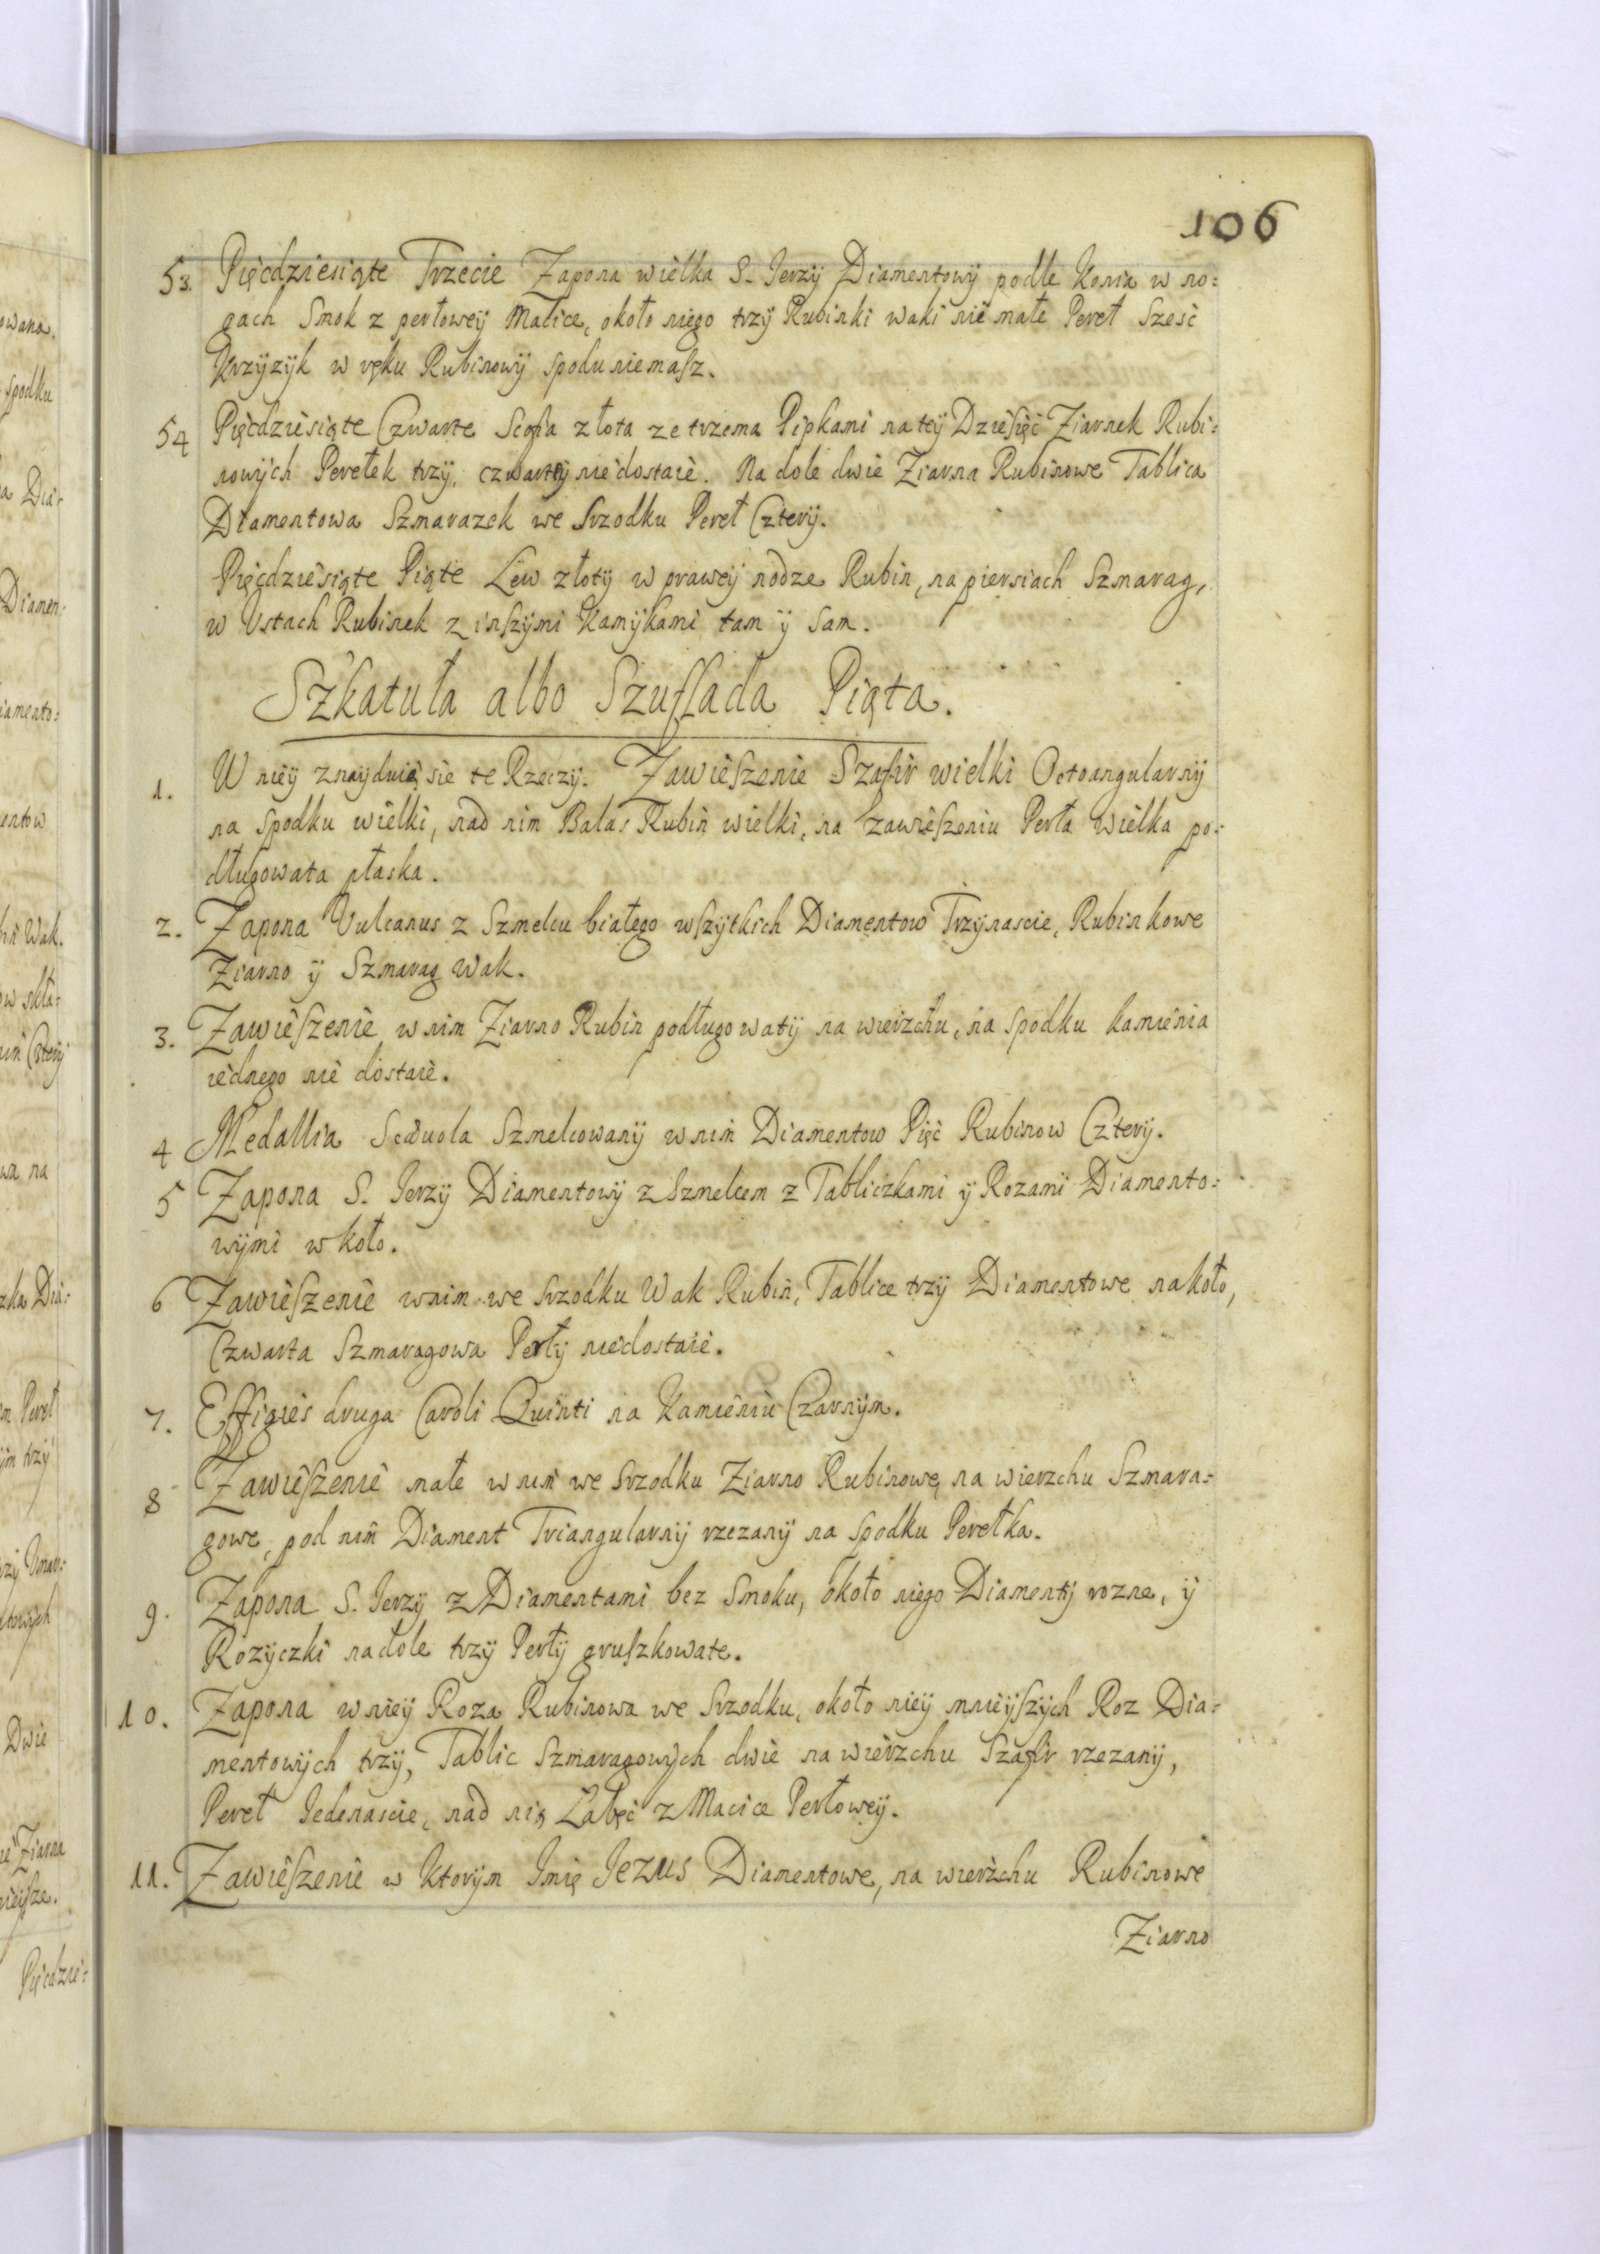 106
53. Pięcdziesiąte Trzecie Zapona wielka S. Jerzÿ Diamentowÿ podle Konia w no:
gach Smok z perłoweÿ Matice, około niego trzÿ Rubinki waki nie małe Pereł Sześć
Krzÿzÿk w ręku Rubinowÿ spodu niemasz.
54 Pięcdziesiąte Czwarte złota ze trzema Pipkami na teÿ Dziesięć Ziarnek Rubi:
nowÿch Perełek trzÿ, czwartÿ niedostaie. Na dole dwie Ziarna Rubinowe Tablica
Diamentowa Szmarazek we srzodku Pereł Czterÿ.
Pięcdziesiąte Piąte Lew złotÿ w praweÿ nodze Rubin, na piersiach Szmarag,
w Ustach Rubinek z inszÿmi Kamÿkami tam ÿ sam.
Szkatuła albo Szuflada Piąta.
1. W nieÿ znaÿduią sie te Rzeczÿ. Zawieszenie Szafir wielki Octoangularnÿ
na spodku wielki, nad nim Balas Rubin wielki, na zawieszeniu Perła wielka po:
długowata płaska.
2. Zapona Vulcanus z Szmelcu białego wszÿtkich Diamentow Trzÿnascie, Rubinkowe
Ziarno ÿ Szmarag Wak.
3. Zawieszenie w nim Ziarno Rubin podługowatÿ na wierzchu, na spodku kamienia
iednego nie dostaie.
4 Medallia Scevola Szmelcowanÿ w nim Diamentow Pięć Rubinow Czterÿ.
5 Zapona S. Jerzÿ Diamentowÿ z Szmelcem z Tabliczkami ÿ Rozami Diamento:
wÿmi w koło.
6 Zawieszenie w nim we srzodku Wak Rubin, Tablice trzÿ Diamentowe nakoło,
Czwarta Szmaragowa Perłÿ niedostaie.
7. Effigies druga Caroli Quinti na Kamieniu Czarnÿm.
8 Zawieszenie małe w nim we srzodku Ziarno Rubinowe, na wierzchu Szmara:
gowe, pod nim Diament Triangularnÿ rzezanÿ na spodku Perełka.
9. Zapona S. Jerzÿ z Diamentami bez Smoku, około niego Diamentÿ rozne, ÿ
Rozÿczki nadole trzÿ Perłÿ gruszkowate.
10. Zapona w nieÿ Roza Rubinowa we srzodku, około nieÿ mnieÿszÿch Roz Dia:
mentowÿch trzÿ, Tablic Szmaragowÿch dwie na wierzchu Szafir rzezanÿ,
Pereł Jedenascie, nad nią Łabęć z Macice Perłoweÿ.
11. Zawieszenie w Ktorÿm Jmię Jezus Diamentowe, na wierzchu Rubinowe
Ziarno